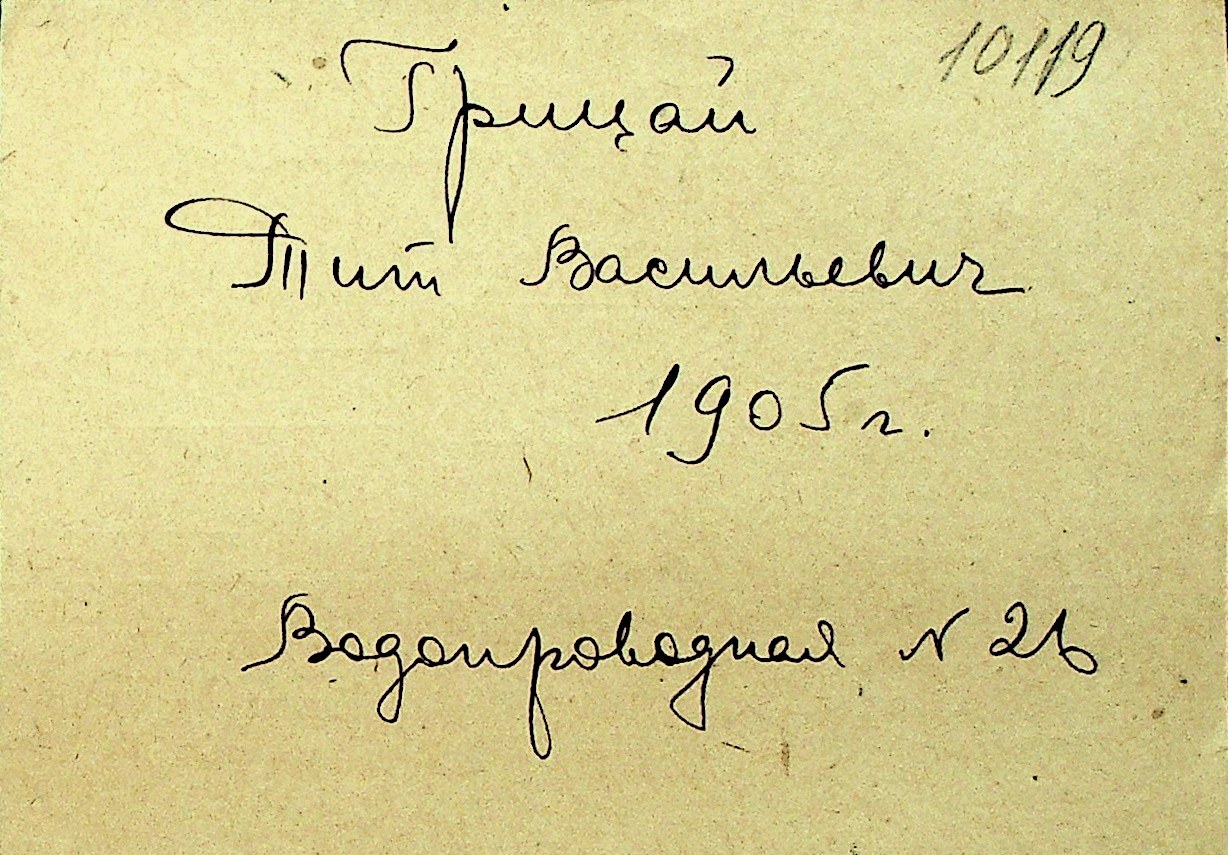 10119
Грицай
Тит Васильевич
1905 г.
Водопроводная N 26